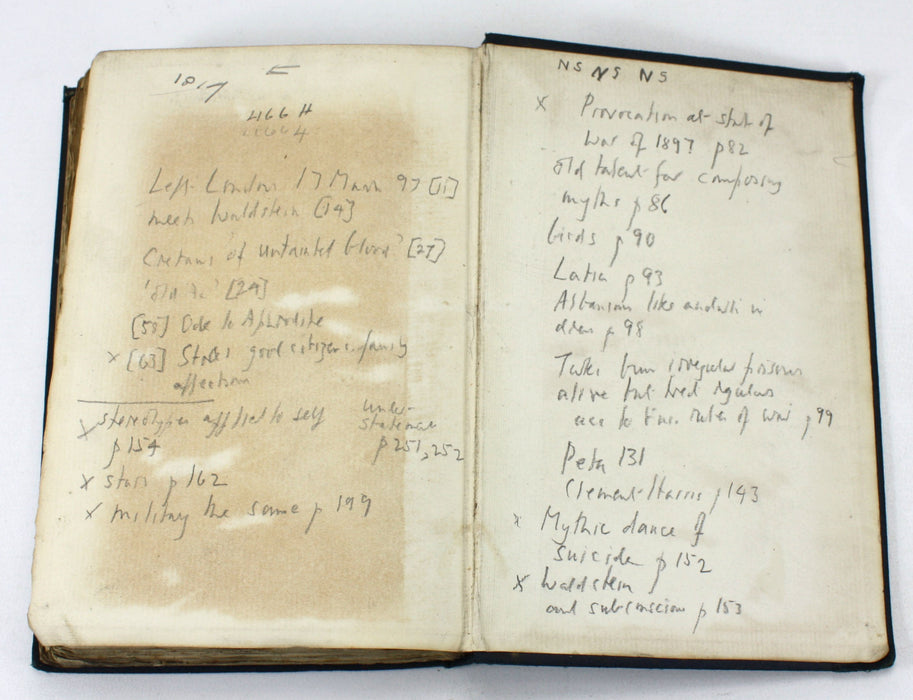 18/7
466 H
466 4
Left London 17 March 97 [11]
meets Waldstein [14]
Cretans of untainted blood' [27]
[29]
[58] Ode to Aphrodite
x [63] good citizens family
affection
x stereotypes applied to self
p 154
under-
statement
p 251, 252
x stars p 162
x military the same p 199
NS NS NS
x Provocation at start of
war of 1897 p 82
old talent for composing
myths p 86
birds p 90
Latia p 93
Albanians like in
dress p 98
Turks burn irregular prisoners
alive but treat regulars
acc to Eur. rules of war p 99
Peta 131
Clement Harris p 143
x Mythic dance of
Suicides p 152
x Waldstein
and subconscious p 153